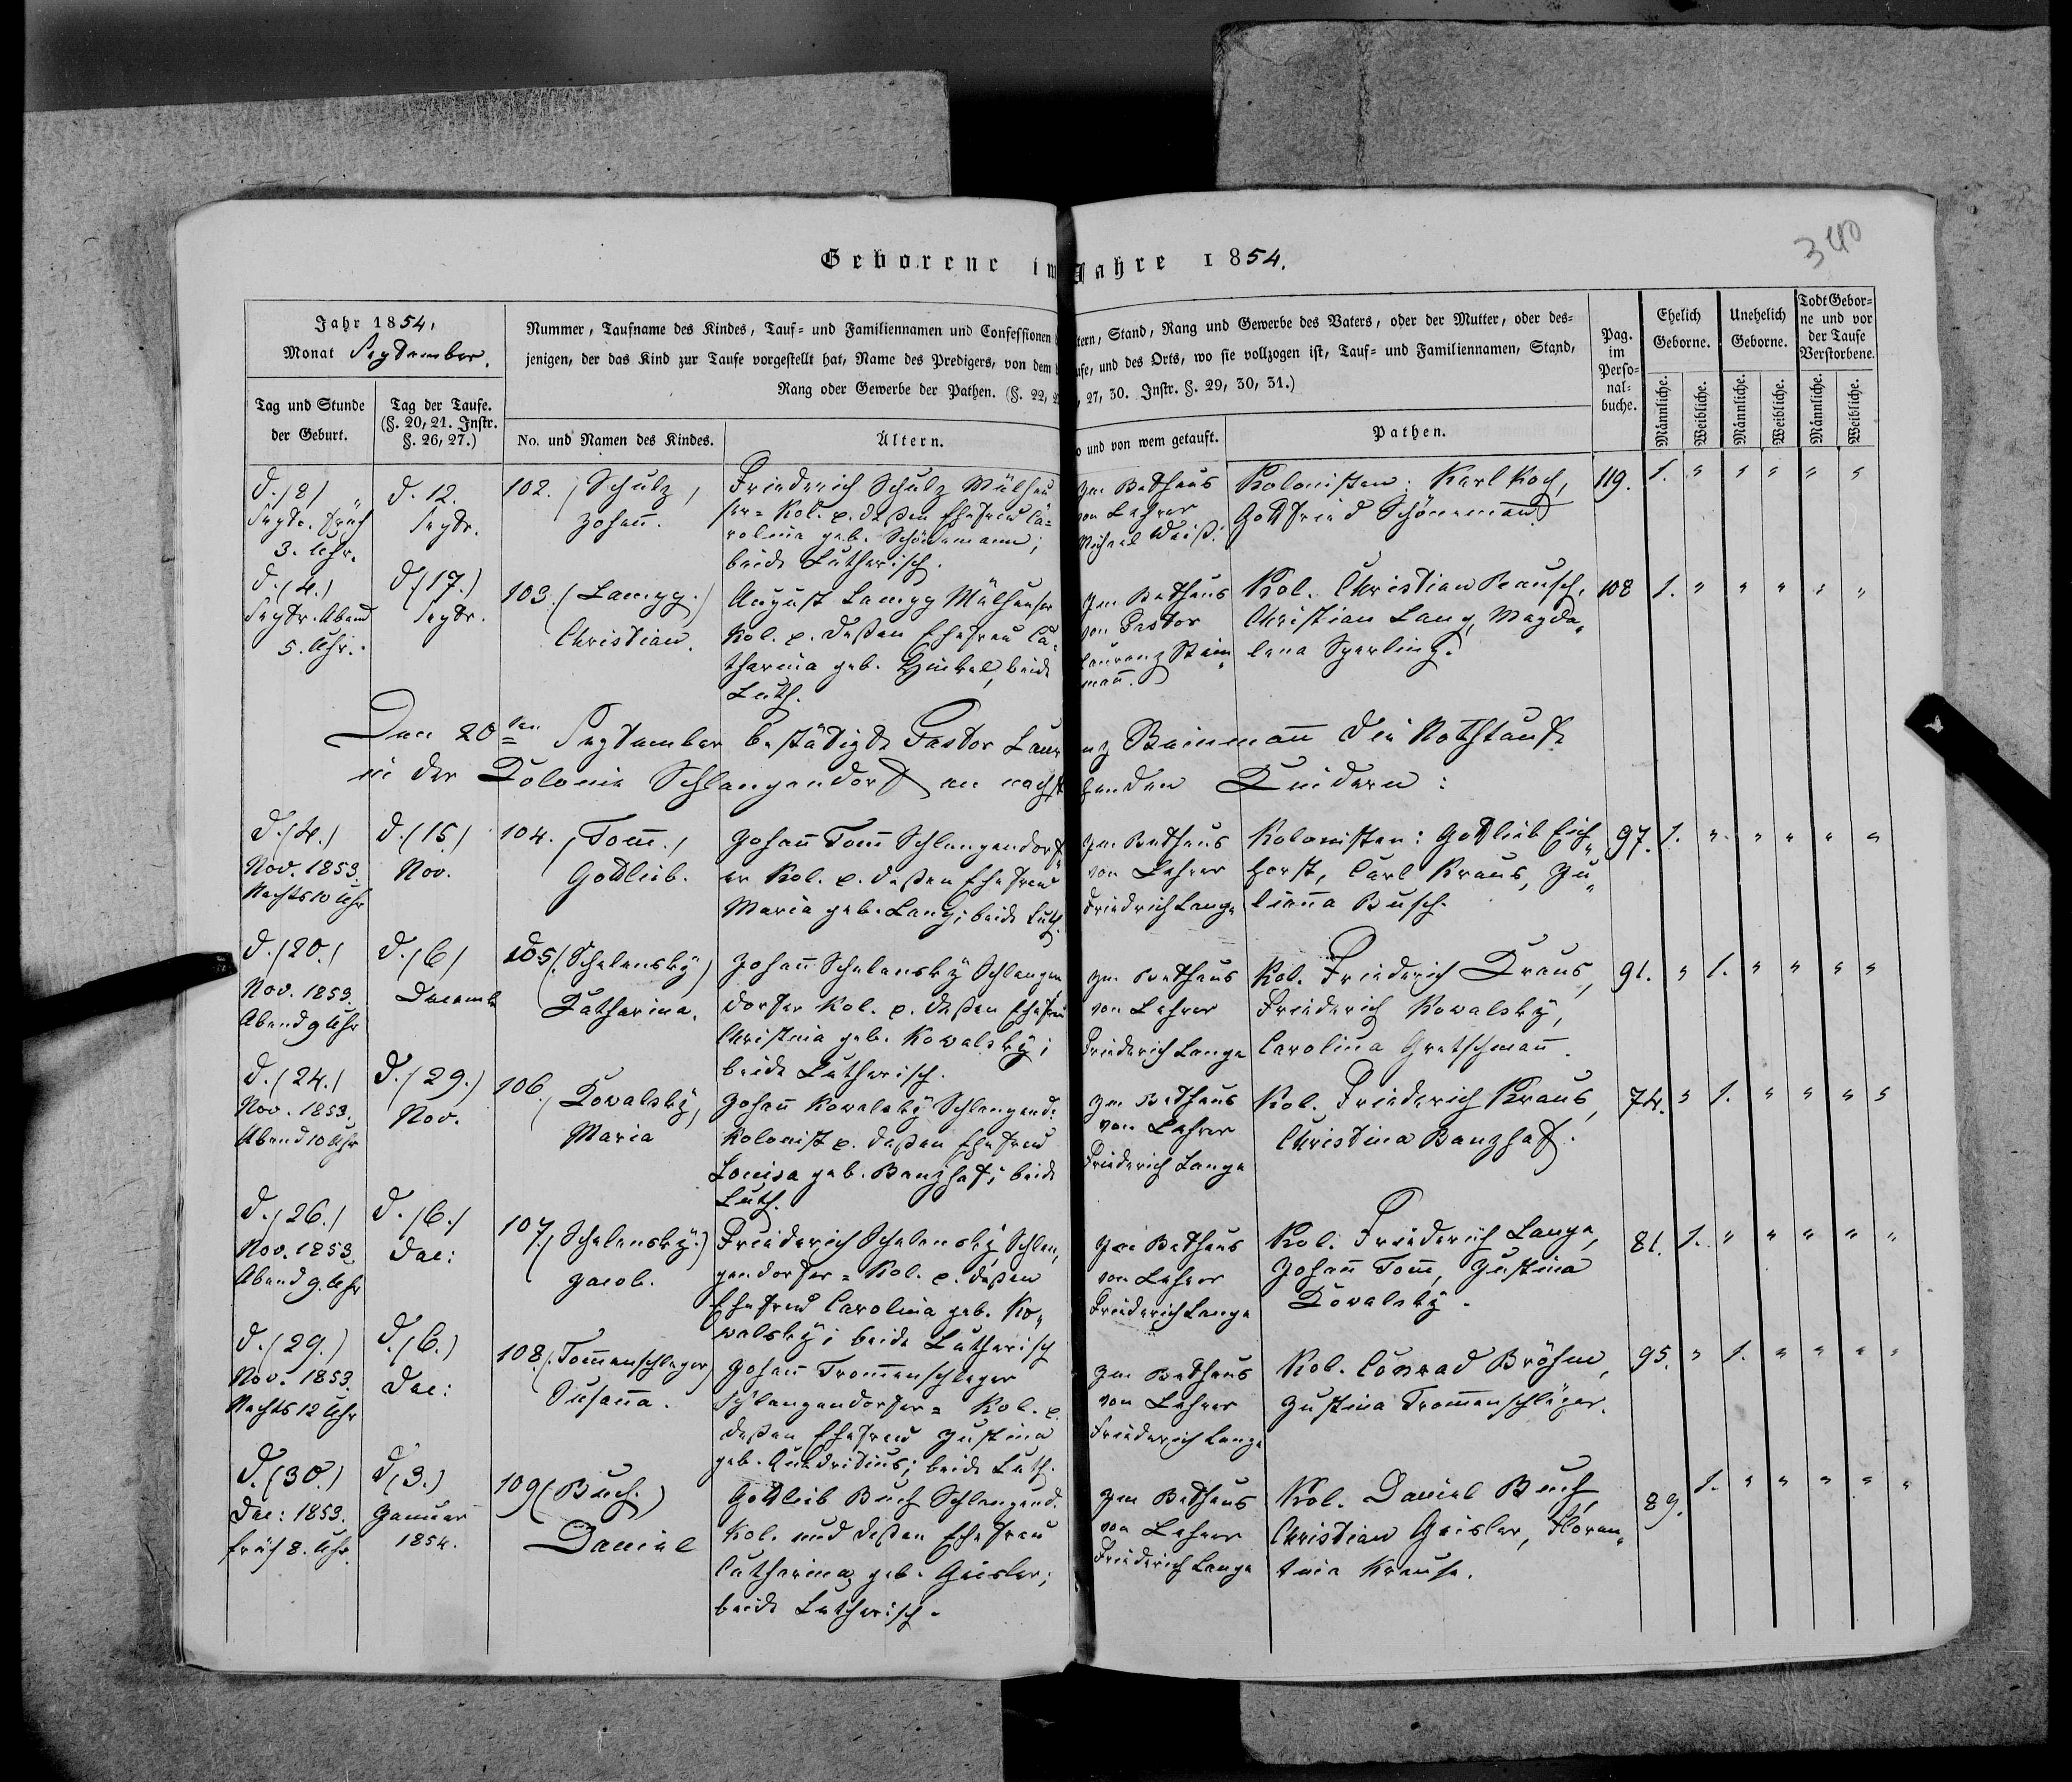 340
Geborene im Jahre 1854.
Jahr 1854.
Monat September.
Nummer, Taufname des Kindes, Tauf- und Familiennamen und Confessionen
tern, Stand, Rang und Gewerbe des Vaters, oder der Mutter, oder des-
jenigen, der das Kind zur Taufe vorgestellt hat, Name des Predigers, von dem
ufe, und des Orts, wo sie vollzogen ist, Tauf- und Familiennamen, Stand,
Rang oder Gewerbe der Pathen. (§. 22,
27, 30. Instr. §. 29, 30, 31.)
Pag.
im
Perso-
nal-
buche.
Ehelich
Geborne.
Unehelich
Geborne.
Todt Gebor-
ne und vor
der Taufe
Verstorbene.
Männliche.
Weibliche.
Männliche.
Weibliche.
Männliche.
Weibliche.
Tag und Stunde
der Geburt.
Tag der Taufe.
(§. 20, 21. Instr.
§. 26, 27.)
No. und Namen des Kindes.
Ältern.
o und von wem getauft.
Pathen.
d. /8/
Septr. früh
3. Uhr.
d. 12.
Septr.
102. /Schulz,
Johan̄.
Friederich Schulz Mülhau
ser= Kol. e. deßen Ehefrau Ca=
rolina geb. Schönemann;
beide Lutherisch.
Im Bethaus
von Lehrer
Michael Weiß.
Kolonisten: Karl Koch,
Gottfried Schönemann
119. 1. " " " " "
d. (4.)
Septr. Abend
5. Uhr.
d. (17.)
Septr.
103. (Lampp.)
Christian.
August Lampp Mülhauser
Kol. e. deßen Ehefrau Ca-
tharina geb. Hinkel, beide
Luth.
Im Bethaus
von Pastor
Laurenz Stein
man̄.
Kol. Christian Rausch,
Christian Lang, Magda-
lena Sperling.
108 1. " " " " "
Den 20ten September bestätigte Pastor Laurenz Steinman̄ die Nothtaufe
in der Kolonie Schlangendorf an nachstehenden Kindern:
d. (4.)
Nov. 1853.
Nachts 10 Uhr
d. (15)
Nov.
104. /Tom̄./
Gottlieb.
Johan̄ Tom̄ Schlangendorf
er Kol. e. deßen Ehefrau
Maria geb. Lang; beide Luth.
Im Bethaus
von Lehrer
Friedrich Lange
Kolonisten: Gottlieb Eich-
horst, Carl Kraus, Ju-
lian̄a Busch.
97. 1. " " " " "
d. /20./
Nov. 1853.
Abend 9 Uhr
d. /6/
Decembr
105 /.Schelensky)
Katharina.
Johan̄ Schelensky Schlangen
dorfer Kol. e. deßen Ehefrau
Christina geb. Kowalsky;
beide Lutherisch.
Im Bethaus
von Lehrer
Friederich Lange
Kol. Friederich Kraus,
Friederich Kowalsky,
Carolina Gretschman̄.
91. " 1. " " " "
d. /24./
Nov. 1853.
Abend 10 Uhr
d. /29.)
Nov.
106. /Kowalsky,
Maria
Johan̄ Kowalsky Schlangend.
Kolonist e. deßen Ehefrau
Louisa geb. Banzhaf; beide
Luth.
Im Bethaus
von Lehrer
Friederich Lange
Kol. Friederich Kraus,
Christina Banzhaf.
74. " 1. " " " "
d. /26./
Nov. 1853.
Abend 9. Uhr
d. /6./
Dec:
107. /Schelensky.)
Jacob.
Friederich Schelensky Schlan-
gendorfer= Kol. e. deßen
Ehefrau Carolina geb. Ko-
walsky; beide Lutherisch
Im Bethaus
von Lehrer
Friederich Lange
Kol. Friederich Lange,
Johan̄ Tom̄, Justina
Kowalsky.
81. 1. " " " " "
d. (29.)
Nov. 1853.
Nachts 12 Uhr
d. (6.)
Dec:
108. (.Tom̄enschleger)
Susan̄a.
Johan̄ Trom̄enschleger
Schlangendorfer= Kol. e.
deßen Ehefrau Justina
beide Luth.
Im Bethaus
von Lehrer
Friederich Lange
Kol. Conrad Bröhm,
Justina Trom̄enschläger.
95. " 1. " " " "
d. (30.)
Dec: 1853.
früh 8. Uhr.
d. (3.)
Januar
1854.
109 (Buch.)
Daniel
Gottlieb Buch Schlangend.
Kol. und deßen Ehefrau
Catharina geb. Geisler;
beide Lutherisch.
Im Bethaus
von Lehrer
Friederich Lange
Kol. Daniel Buch,
Christian Geisler, Floren-
tina Krause.
89. 1. " " " " "